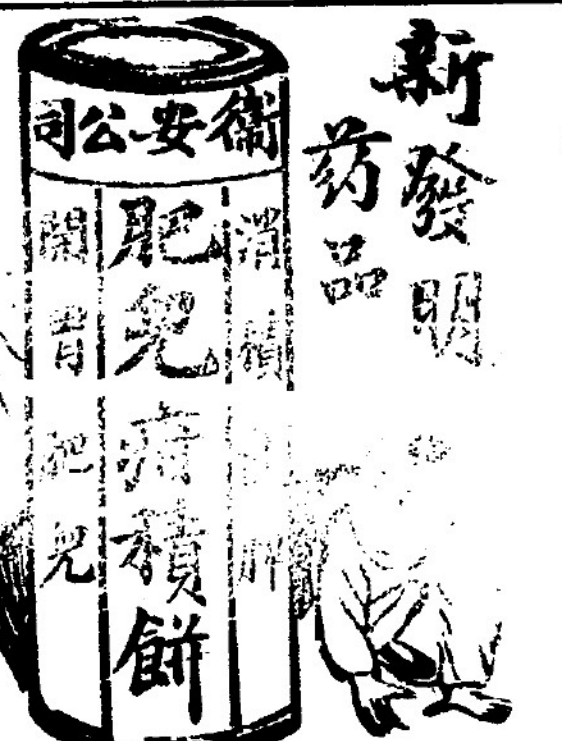 新發明
药品
衞安公司
消積
肥兒疳積餅
開胃肥兒